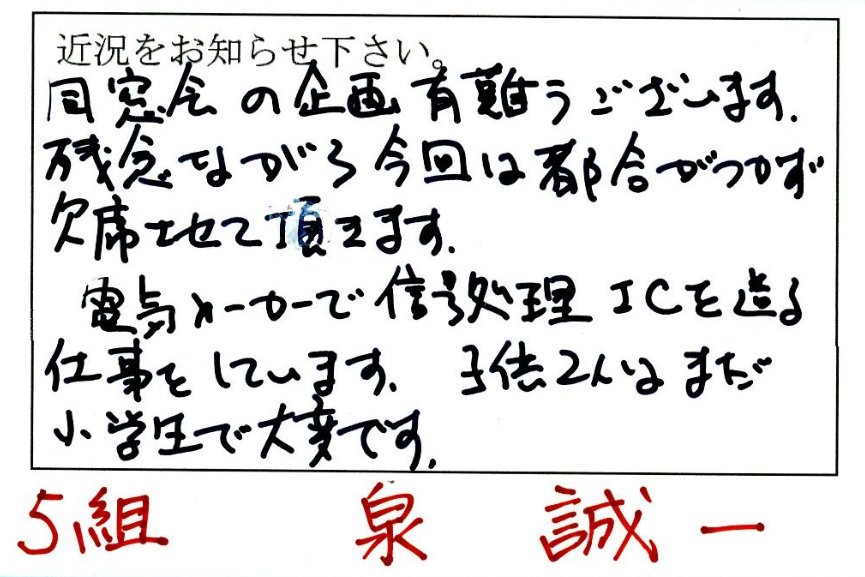 近況をお知らせ下さい。
同窓会の企画有難うございます.
残念ながら今回は都合がつかず
欠席させて頂きます.
電気メーカーで信号処理ICを造る
仕事をしています. 子供2人はまだ
小学生で大変です.
5組 泉 誠一